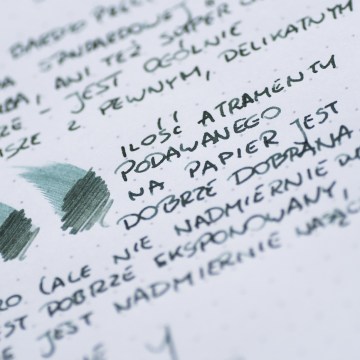 BARDZO
STANDARDOWEJ
ANI TEŻ SUPER
– JEST OGÓLNIE
Z PEWNYM, DELIKATNYM
ILOŚĆ ATRAMENTU
PODAWANEGO
NA PAPIER JEST
DOBRZE DOBRANA
(ALE NIE NADMIERNIE
DOBRZE EKSPONOWANY,
JEST NADMIERNIE